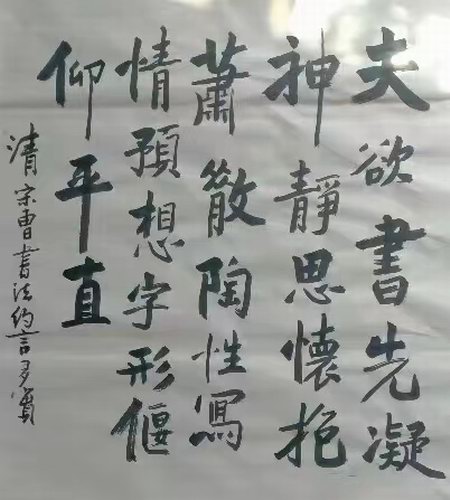 夫欲書先凝
神靜思懷抱
蕭散陶性寫
情預想字形偃
仰平直
清宋曹書法約言多賓